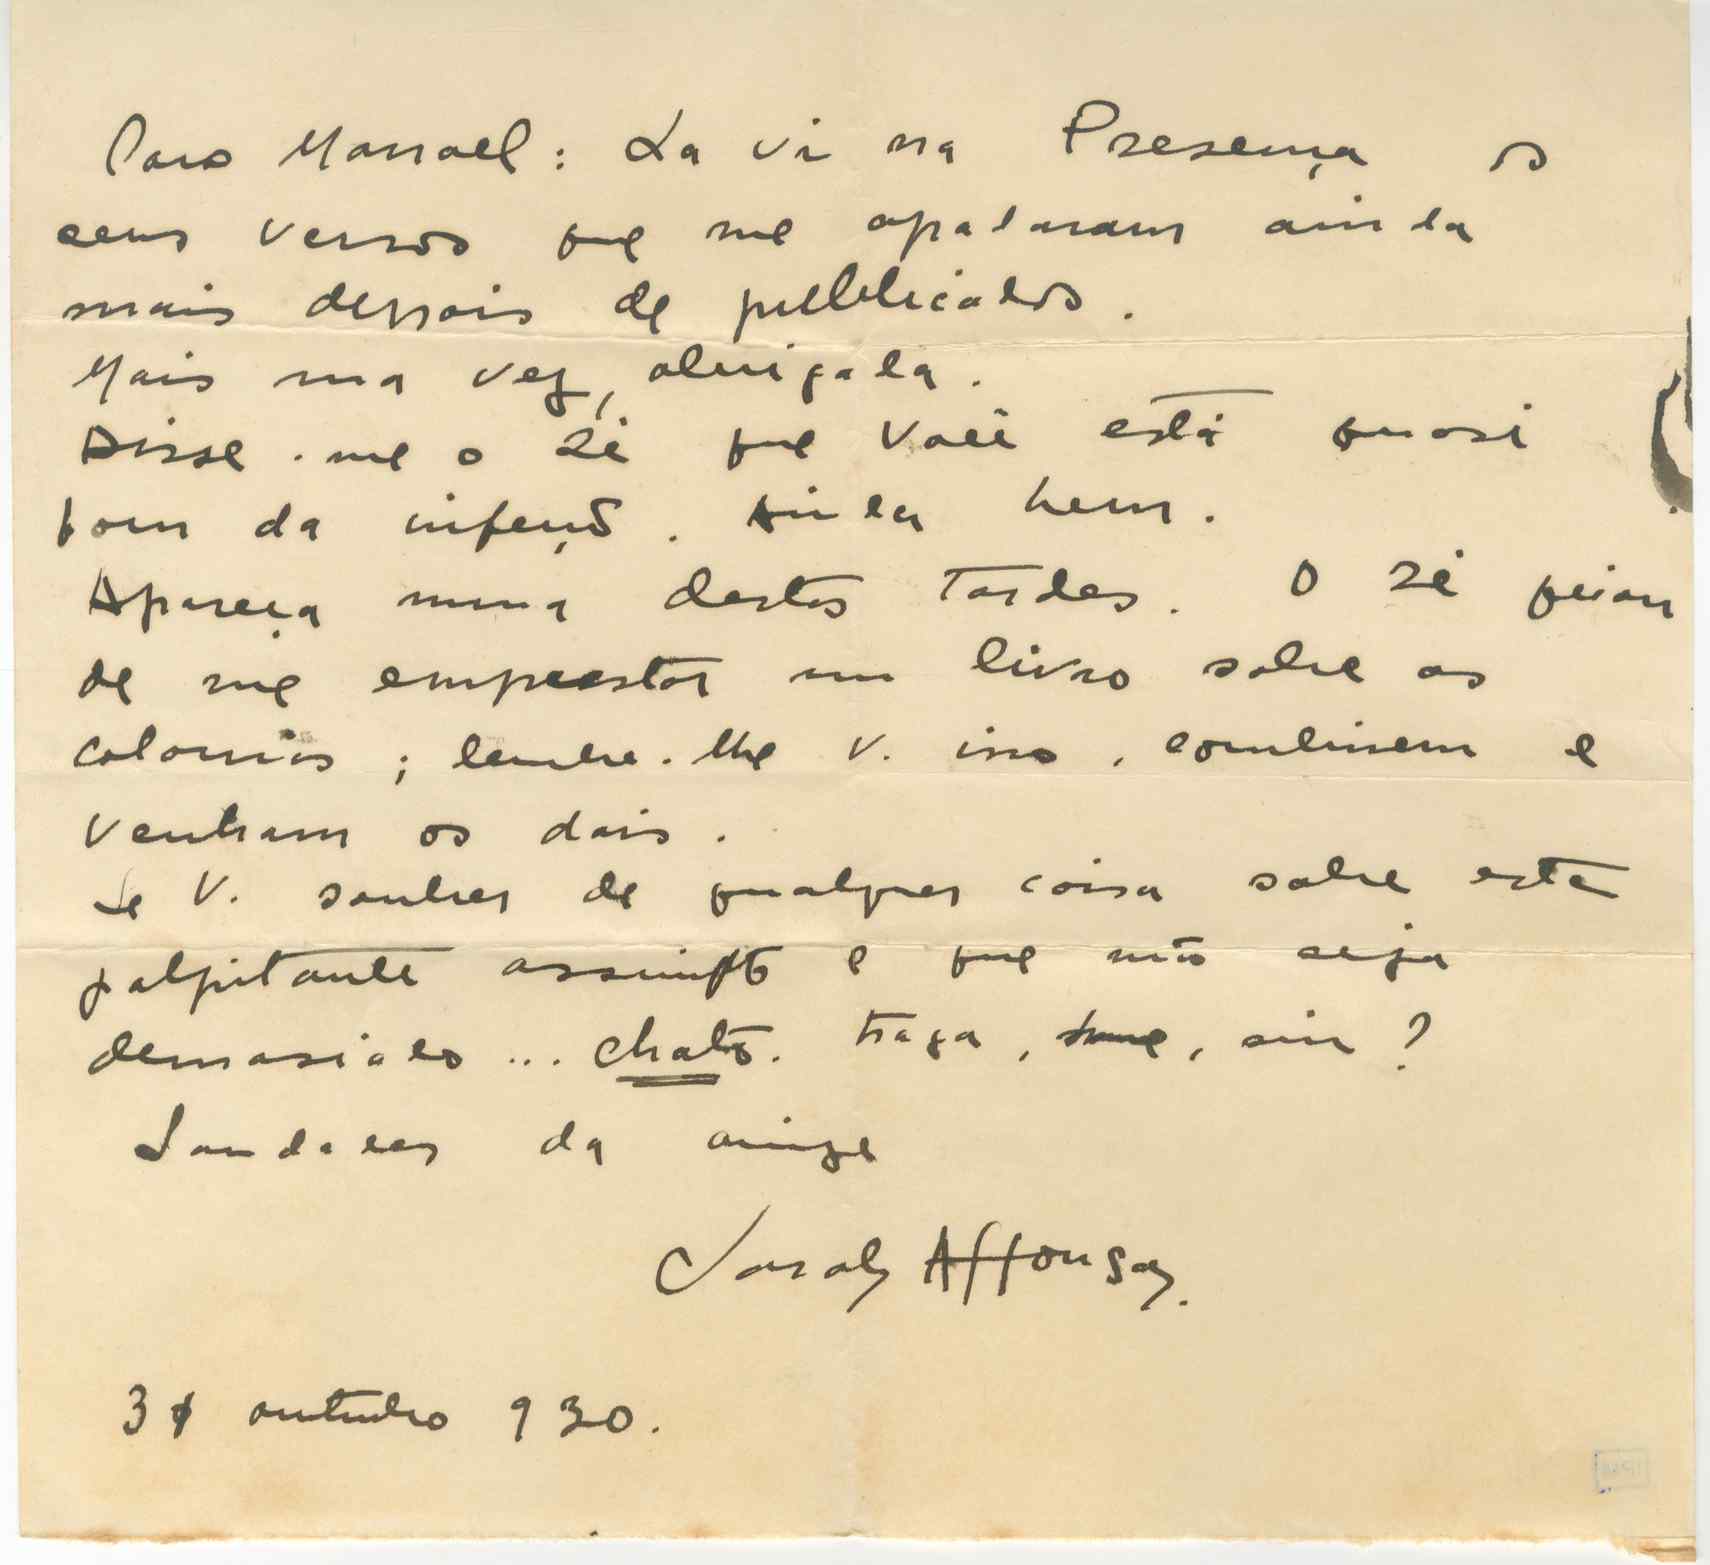 Caro Manoel: Lá vi na Presença os
seus versos que me agradaram ainda
mais depois de publicados.
Mais uma vez, obrigada.
Disse-me o Zé que Você está quasi
bom da infeção. Ainda bem.
Apareça numa destas tardes. O Zé ficou
de me emprestar um livro sobre as
colonias; lembre-lhe V. isso, combinem e
venham os dois.
Se V. souber de qualquer coisa sobre este
palpitante assunto e que não seja
demasiado ... chato. traga, sim?
Saudades da amiga
Sarah Affonso.
31 outubro 930.